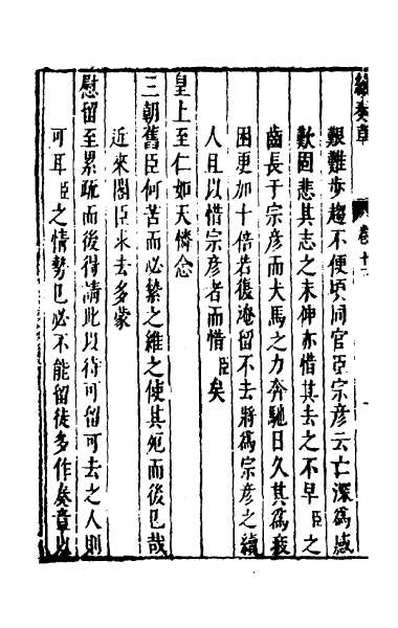 續奏草 卷十二
艱難步趨不便頃同官臣宗彥云亡深爲感
歎固悲其志之未伸亦惜其去之不早臣之
齒長于宗彥而犬馬之力奔馳日久其爲疲
困更加十倍若復淹留不去將爲宗彥之續
人且以惜宗彥者而惜臣矣
皇上至仁如天憐念
三朝舊臣何苦而必縶之維之使其死而後已哉
近來閣臣求去多蒙
慰留至累疏而後得請此以待可留可去之人則
可耳臣之情勢已必不能留徒多作奏章以